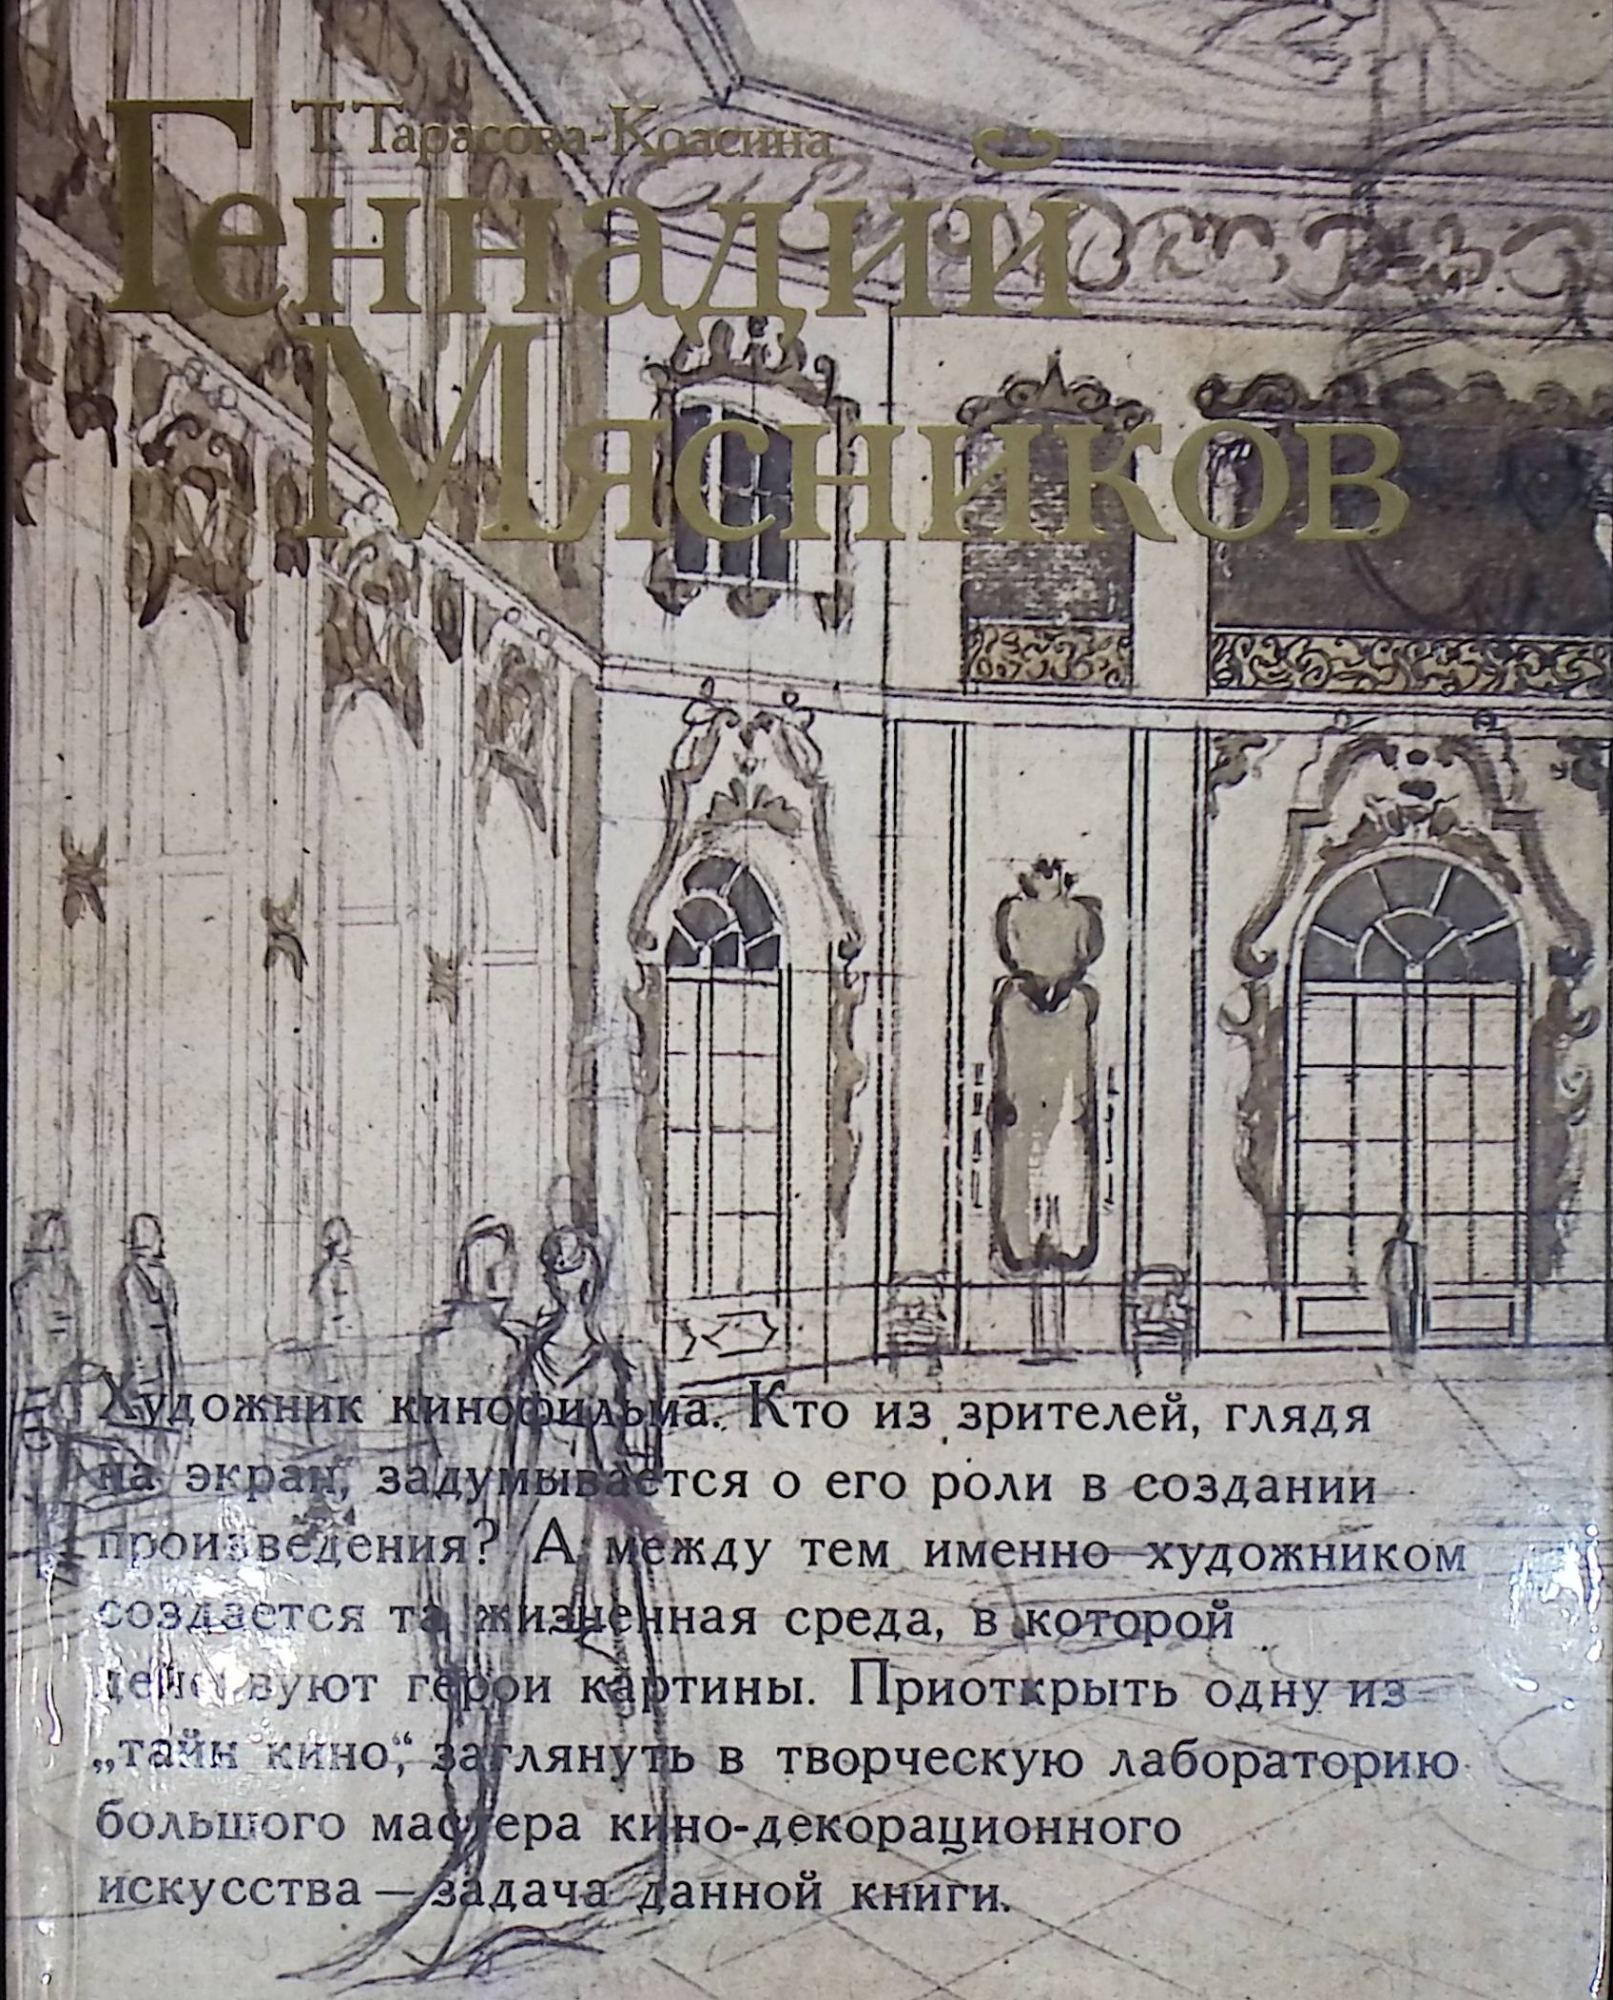 Т. Тарасова-Красина
Геннадий
Мясников
Художник кинофильма. Кто из зрителей, глядя
на экран, задумывается о его роли в создании
произведения? А между тем именно художником
создается та жизненная среда, в которой
действуют герои картины. Приоткрыть одну из
„тайн кино“, заглянуть в творческую лабораторию
большого мастера кино-декорационного
искусства — задача данной книги.